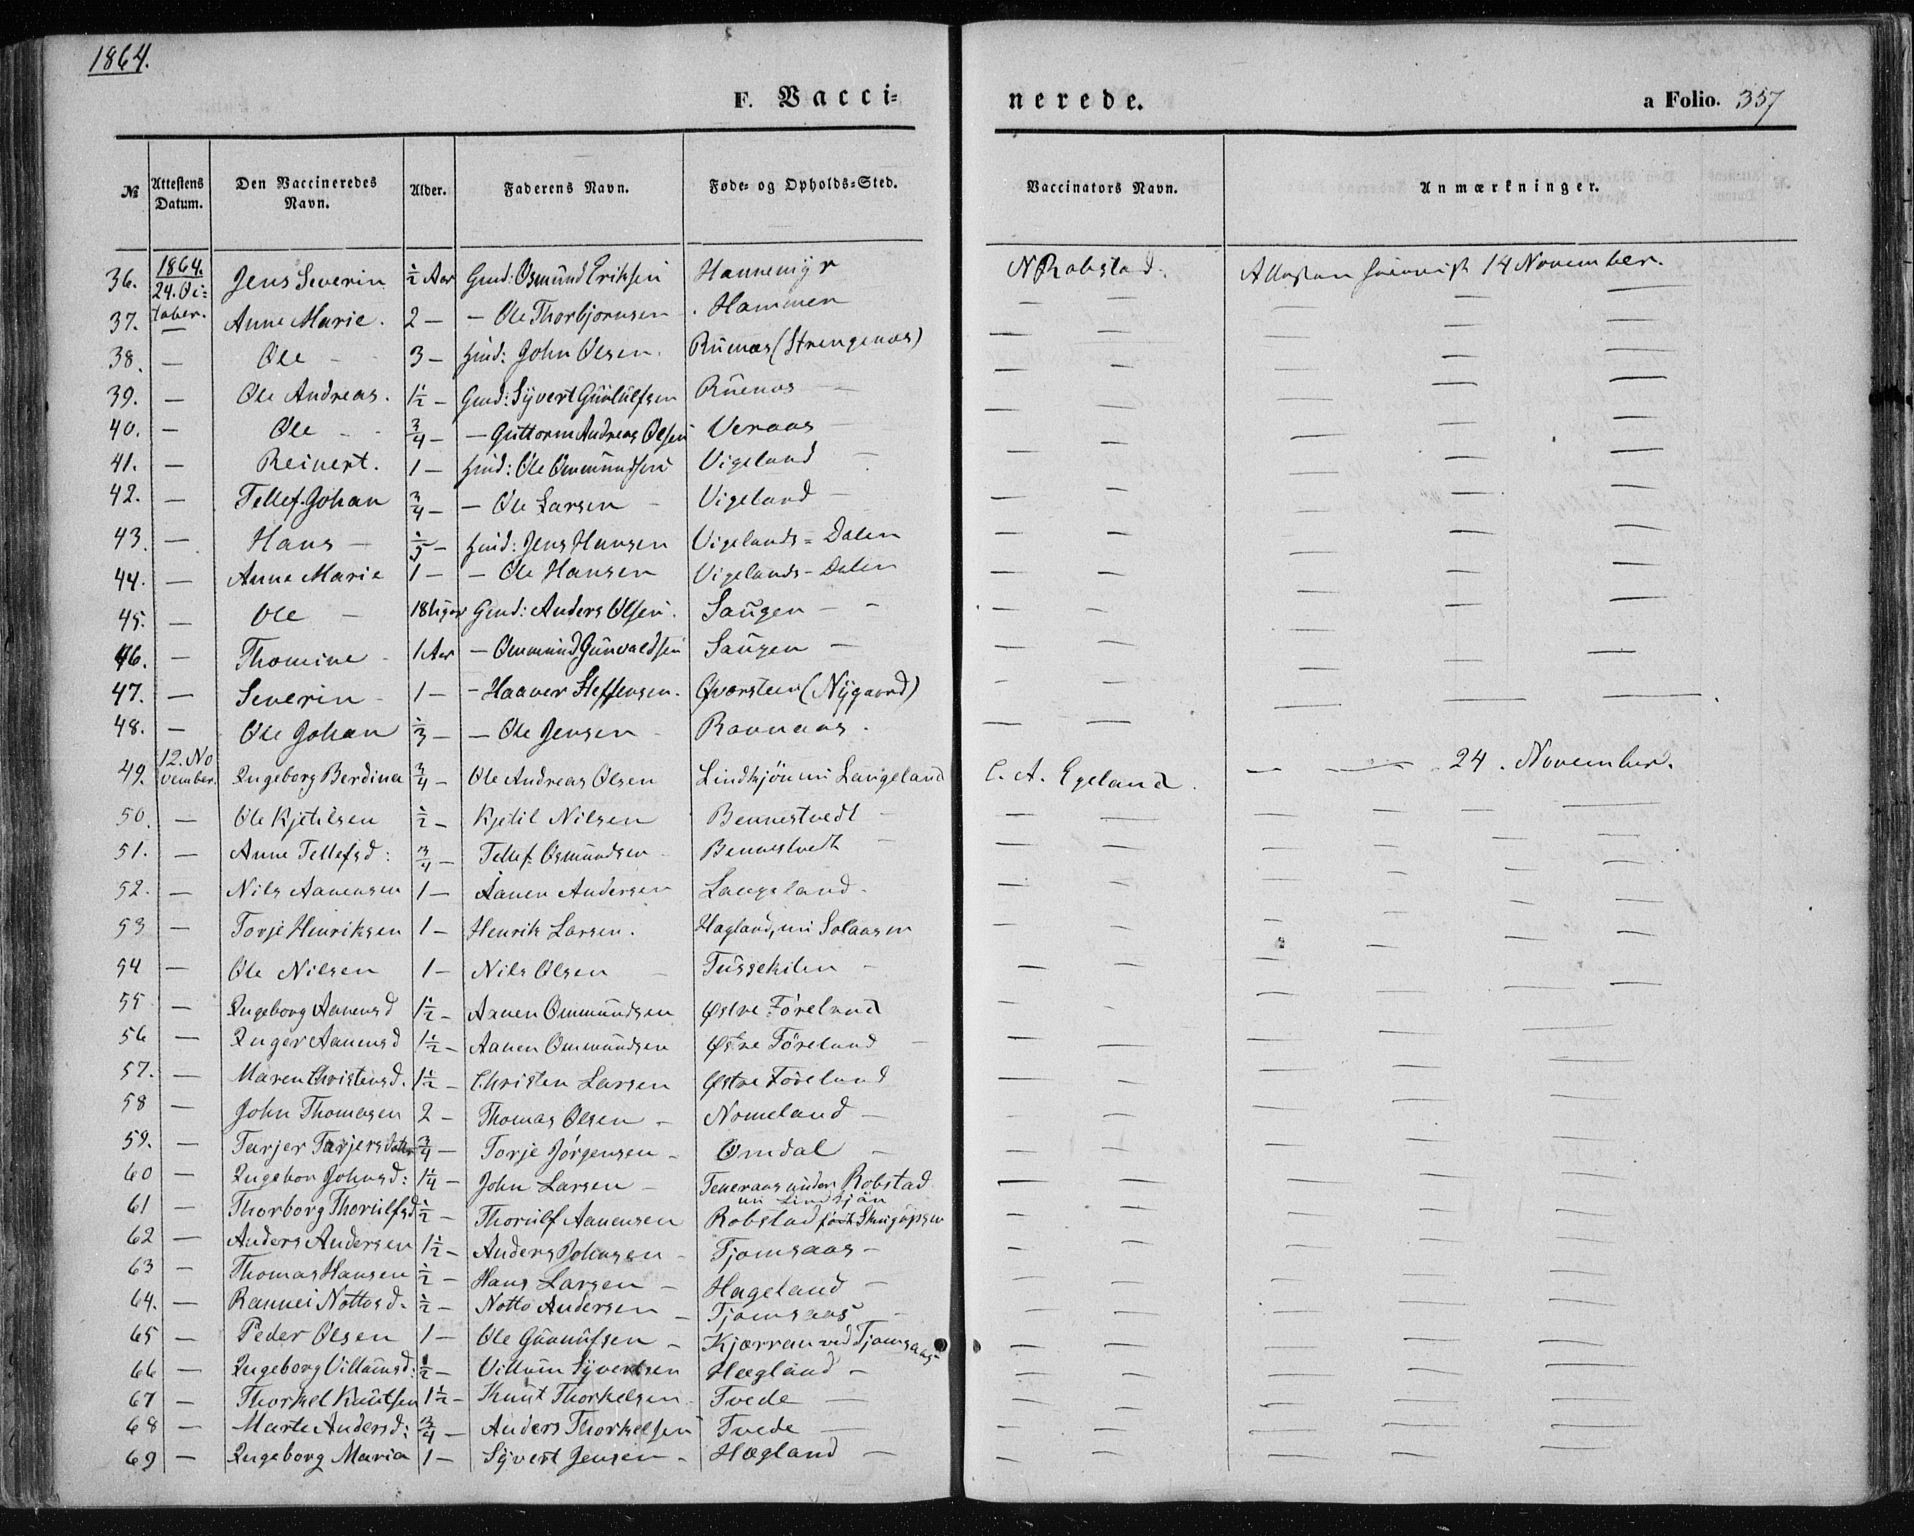 1864.
F. Vacci=
nerede.
a Folio. 357
№ Attestens Datum. Den Vaccineredes Navn. Alder. Faderens Navn. Føde- og Opholds-Sted. Vaccinators Navn. Anmærkninger.
36. 1864. 24. Oc=tober. Jens Severin ½ Aar Gmd: Osmund Eriksen Hannemyr N Robstad. 14 November.
37. — Anne Marie. 2 — — Ole Thorbjørnsen Hammen — — — — —
38. — Ole 3 — Hmd: John Olsen. Ruenæs (Strengenæs) — — — — —
39. — Ole Andreas. 1½ — Gmd: Syvert Gunlulfsen Ruenæs — — — — —
40. — Ole ¾ — — Guttorm Andreas Olsen Veraas — — — — —
41. — Reinert. 1 — Hmd: Ole Ommundsen Vigeland — — — — —
42. — Tellef Johan ¾ — — Ole Larsen Vigeland — — — — —
43. — Hans — ⅓ — Hmd: Jens Hansen Vigelands=Dalen — — — — —
44. — Anne Marie 1 — — Ole Hansen Vigelands-Dalen — — — — —
45. — Ole — 18 Uger Gmd: Anders Olsen. Saugen — — — — —
46. — Thomine 1 Aar — Ommund Gunvaldsen Saugen — — — — —
47. — Severin 1 — — Haaver Steffensen. Qvarsteen (Nygaard) — — — — —
48. — Ole Johan ⅓ — — Ole Jensen Ravnaas. — — — — —
49. 12. November. Ingeborg Berdina ¾ — Ole Andreas Olsen Lindkjøn ni Langeland C. A. Egeland. — — 24. November.
50. — Ole Kjetilsen ½ — Kjetil Nilsen Bennestvedt — — — — —
51. — Anne Tellefsd: ¾ — Tellef Osmundsen Bennestvedt — — — — —
52. — Nils Aanensen 1 — Aanen Andersen Langeland. — — — — —
53 — Torje Henriksen 1 — Henrik Larsen. Hagland, ni Solaasen — — — — —
54 — Ole Nilsen 1 — Nils Olsen Tussekilen — — — — —
55 — Ingeborg Aanensd 1½ — Aanen Ommundsen Østre Føreland — — — — —
56 — Inger Aanensd 1½ — Aanen Ommundsen Østre Føreland — — — — —
57. — Maren Christensd. 1½ — Christen Larsen Østre Føreland — — — — —
58 — John Thomasen 2 — Thomas Olsen Nomeland — — — — —
59. — Tarjer Tarjersdatter ¾ — Torje Jørgensen Omdal — — — — —
60 — Ingebor Johnsd: 1¼ — John Larsen Teneraas under Robstad — — — — —
ni Lindkjøn
61 — Thorborg Thorulfsd ½ — Thorulf Aanensen Robstad — — — — —
62 — Anders Andersen 1½ — Anders Johnsen Tjomsaas — — — — —
63 — Thomas Hansen ½ — Hans Larsen Hageland — — — — —
64. — Rannei Nottosd. ½ — Notto Andersen Tjomsaas — — — — —
65 — Peder Olsen 1 — Ole Gunnufsen Kjærran ved Tjomsaas — — — — —
66 — Ingeborg Villumsd: ½ — Villum Syvertsen Hægland — — — — —
67 — Thorkel Knutsen 1½ — Knut Thorkelsen Tvede — — — — —
68 — Marte Andersd: ¾ — Anders Thorkelsen Tvede — — — — —
69 — Ingeborg Maria 1 — Syvert Jensen Hægland — — — — —